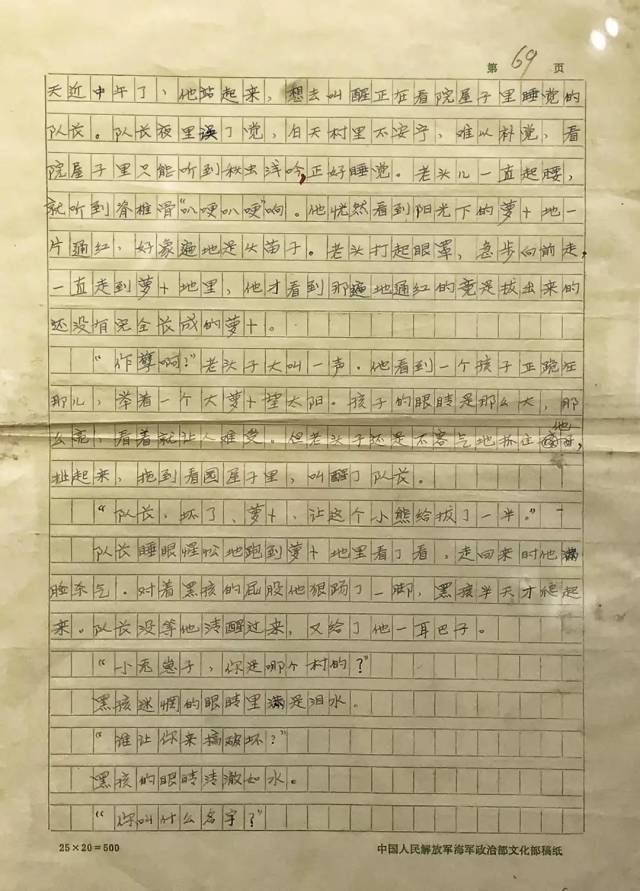 第 69 页
天近中午了，他站起来，想去叫醒正在看院屋子里睡觉的
队长。队长夜里误了觉，白天村里不安宁，难以补觉，看
院屋子里只能听到秋虫浮吟，正好睡觉。老头儿一直起腰，
就听到脊椎骨“叭哽叭哽”响。他恍然看到阳光下的萝卜地一
片通红，好象遍地是火苗子。老头打起眼罩，急步向前走，
一直走到萝卜地里，他才看到那遍地通红的竟是拔出来的
还没有完全长成的萝卜。
“作孽啊！”老头子大叫一声。他看到一个孩子正跪在
那儿，举着一个大萝卜望太阳。孩子的眼睛是那么大，那
么亮，看着就让人难受。但老头子还是不客气地抓住他，
扯起来，拖到看园屋子里，叫醒了队长。
“队长，坏了，萝卜，让这个小熊给拔了一半。”
队长睡眼惺忪地跑到萝卜地里看了看，走回来时他满
脸杀气。对着黑孩的屁股他狠踢了一脚，黑孩半天才爬起
来。队长没等他清醒过来，又给了他一耳巴子。
“小兔崽子，你是哪个村的？”
黑孩迷惘的眼睛里满是泪水。
“谁让你来搞破坏？”
黑孩的眼睛清澈如水。
“你叫什么名字？”
25×20=500 中国人民解放军海军政治部文化部稿纸